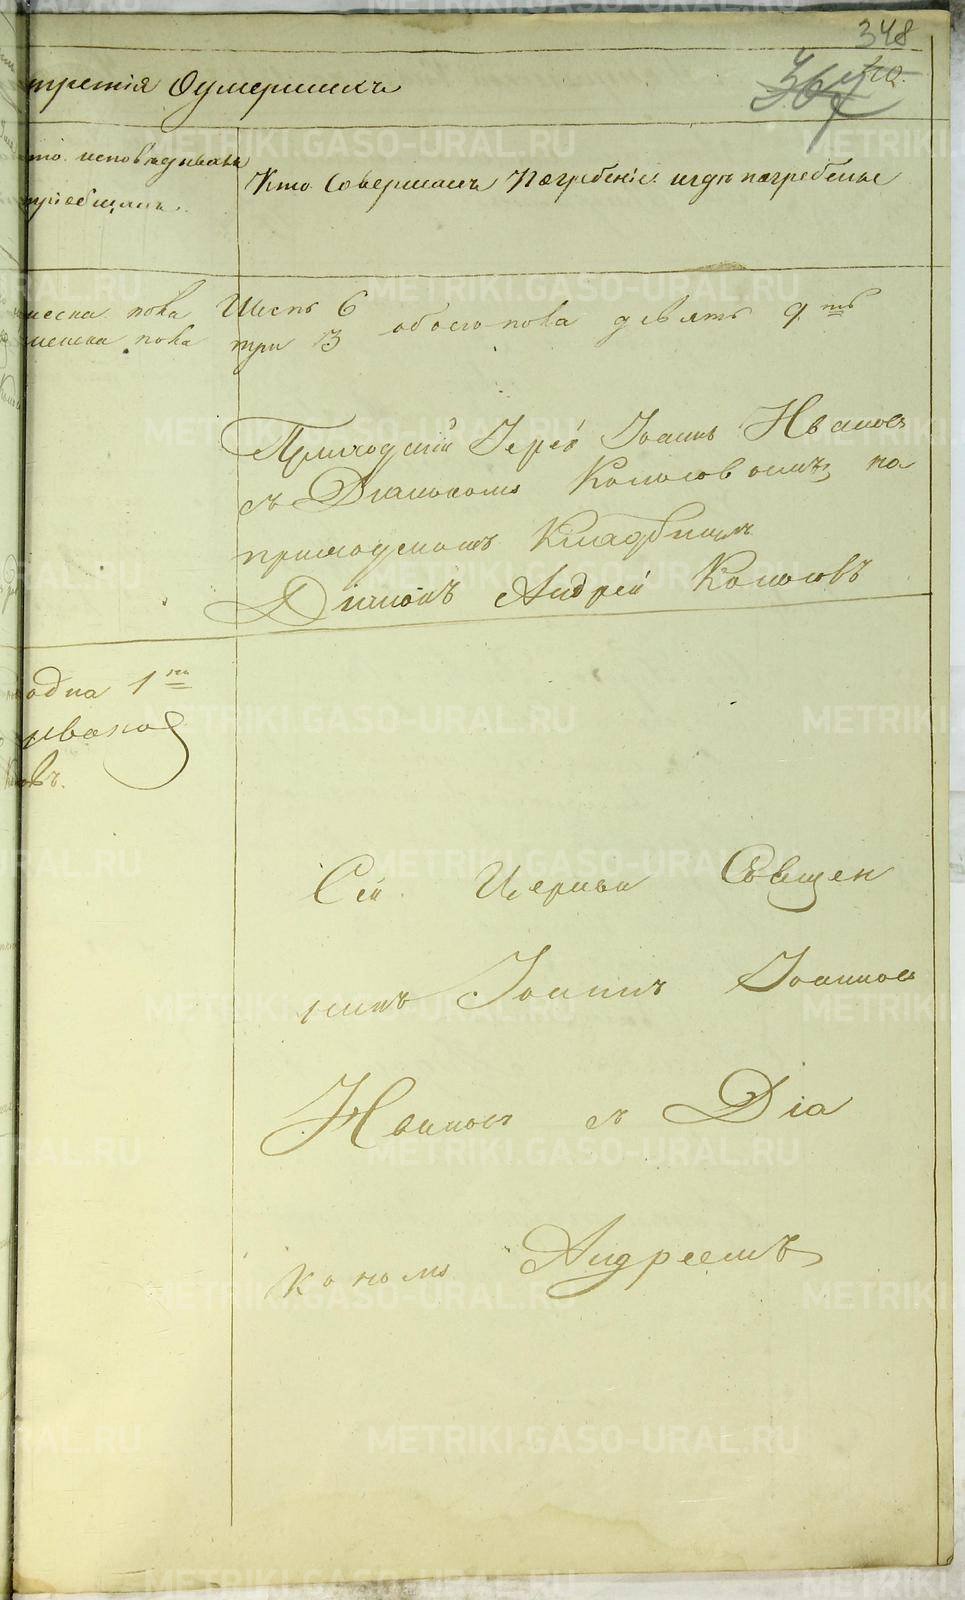 348
367
110.
третія Оумершихъ
то исповѣдывалъ
пріобщалъ.
Кто Совершалъ Погребеніе. игдѣ погребены
жеска пола Шесть 6
обоего пола девять 9ть
женска пола три 3
Приходскій Іерей Іоаннъ Ивановъ
съ Діакономъ Колосовымъ, на
приходскомъ Кладбищѣ
Діаконъ Андрей Колосовъ
одна 1на
Иванов
овъ.
Сей Церкви Священ
никъ Іоаннъ Іоанновъ
Ивановъ съ Діа
кономъ Андреемъ
METRIKI.GASO-URAL.RU